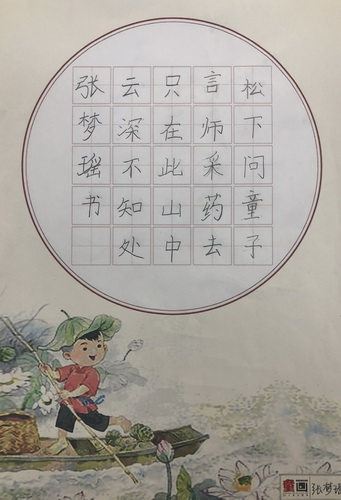 松下问童子
言师采药去
只在此山中
云深不知处
张梦瑶书
童画
张梦瑶